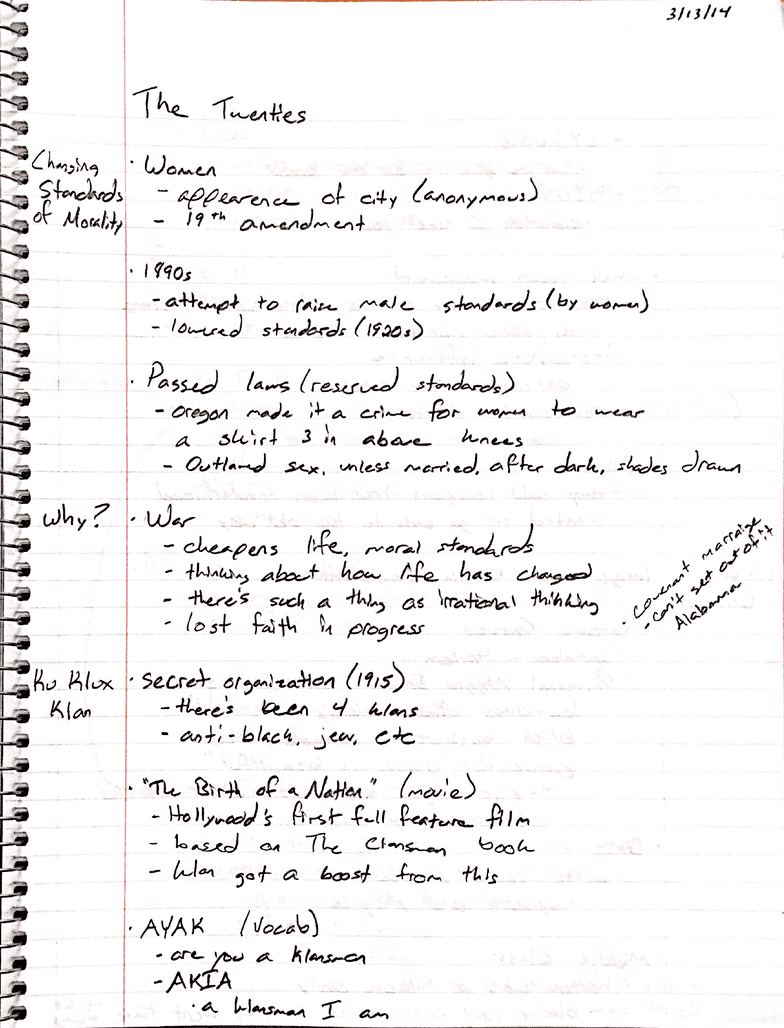 3/13/14
The Twenties
Changing Standards of Morality
· Women
- appearence of city (anonymous)
- 19th amendment
· 1890s
- attempt to raise male standards (by women)
- lowered standards (1920s)
· Passed laws (reserved standards)
- Oregon made it a crime for women to wear
a skirt 3 in above knees
- Outlawed sex, unless married, after dark, shades drawn
Why?
· War
- cheapens life, moral standards
- thinking about how life has changed
- there's such a thing as irrational thinking
- lost faith in progress
· covenant marraige
- can't get out of it
Alabama
Ku Klux Klan
· secret organization (1915)
- there's been 4 klans
- anti-black, jew, etc
· "The Birth of a Nation" (movie)
- Hollywood's first full feature film
- based on The Clansman book
- klan got a boost from this
· AYAK (vocab)
- are you a klansman
- AKIA
· a klansman I am